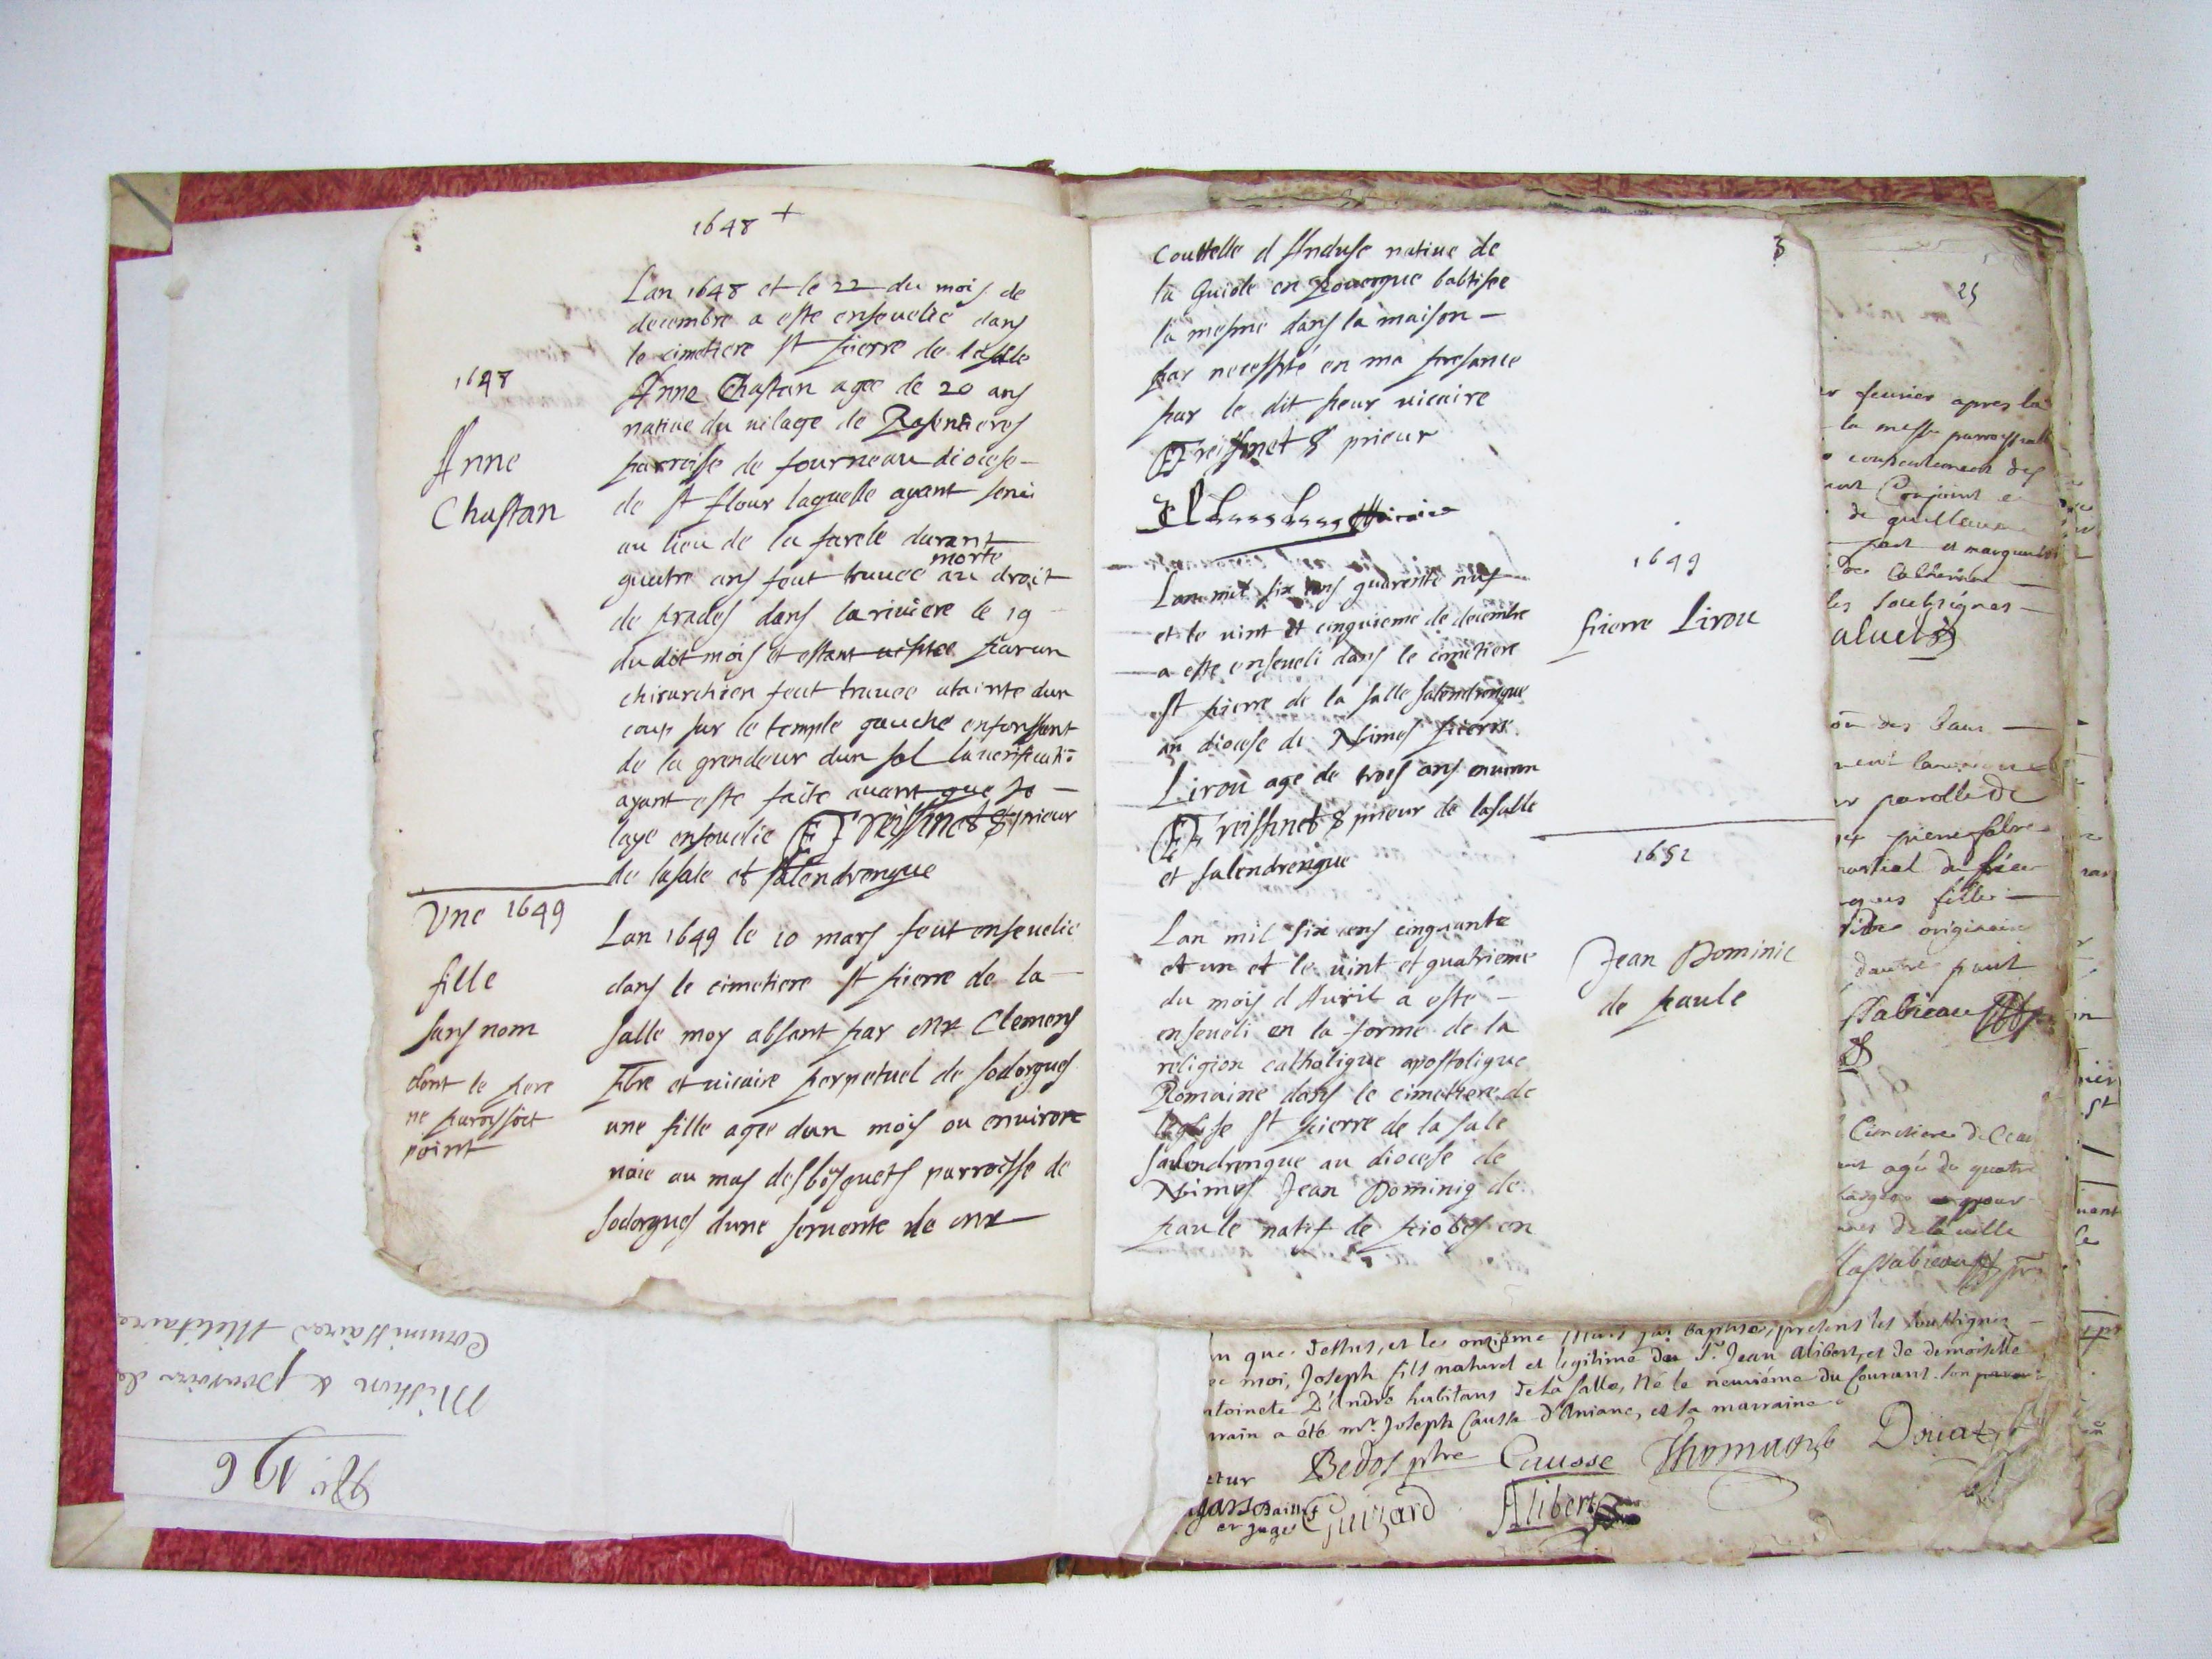 1648 +
Lan 1648 et le 22 du mois de
decembre a este ensevelie dans
le cimetiere st pierre de lasale
Anne Chastan agee de 20 ans
native du vilage de
parroisse de fourneau diocese
de st flour laquelle ayant servi
au lieu de la farele durant
quatre ans feut trouvee morte au droit
de prades dans la riviere le 19
du dit mois et estant par un
chirurchien feut trouvee atainte dun
coup sur le temple gauche enfonssant
de la grandeur dun sol la verificatiō
ayant este faite avant que je
laye ensevelie F Freissinet prieur
de lasale et salendrenque
1648
Anne
Chastan
Une 1649
fille
sans nom
dont le pere
ne paroissoit
point
Lan 1649 le 10 mars feut ensevelie
dans le cimetiere st pierre de la
salle moy absant par mr Clemens
pbre et vicaire perpetuel de sodorgues
une fille agee dun mois ou environ
naie au mas des bosquets parroisse de
sodorgues dune servente de mr
3
couttelle d Anduse native de
la Guiole en Rouergue babtisee
la mesme dans la maison
par necessité en ma presance
par le dit sieur vicaire
Freissinet prieur
vicaire
Lan mil six cens quarente nuf
et le vint et cinquieme de decembre
a este enseveli dans le cimetiere
st pierre de la salle salendrenque
au diocese de Nimes pierre
Lirou age de trois ans environ
Freissinet prieur de lasalle
et salendrenque
1649
pierre Lirou
1651
Jean Dominic
de paule
Lan mil six cens cinquante
et un et le vint et quatrieme
du mois d Avril a esté
enseveli en la forme de la
religion catholique apostolique
Romaine dans le cimetiere de
leglise st pierre de la sale
salendrenque au diocese de
Nimes Jean Dominiq de
paule natif de en
25
fevrier apres la
la messe
Conjoint
de
et
les soubsignes
des
parolle de
pierre fabre
fille
originaire
dautre part
Cimetiere de
agé de quatre
de la ville
que dessus, et le onzième Mars jai baptisé, présens les soussignez
moi, Joseph fils naturel et legitime du Sr. Jean Alibert, et de demoiselle
D'André habitans de La salle, Né le neuvième du Courant. son
a été mr. Joseph Causse d'Aniane, et la marraine
Bedos ptre Causse Douat
Guizard Alibert
No. 196
Mission & pouvoirs de
Commissaires Militaires